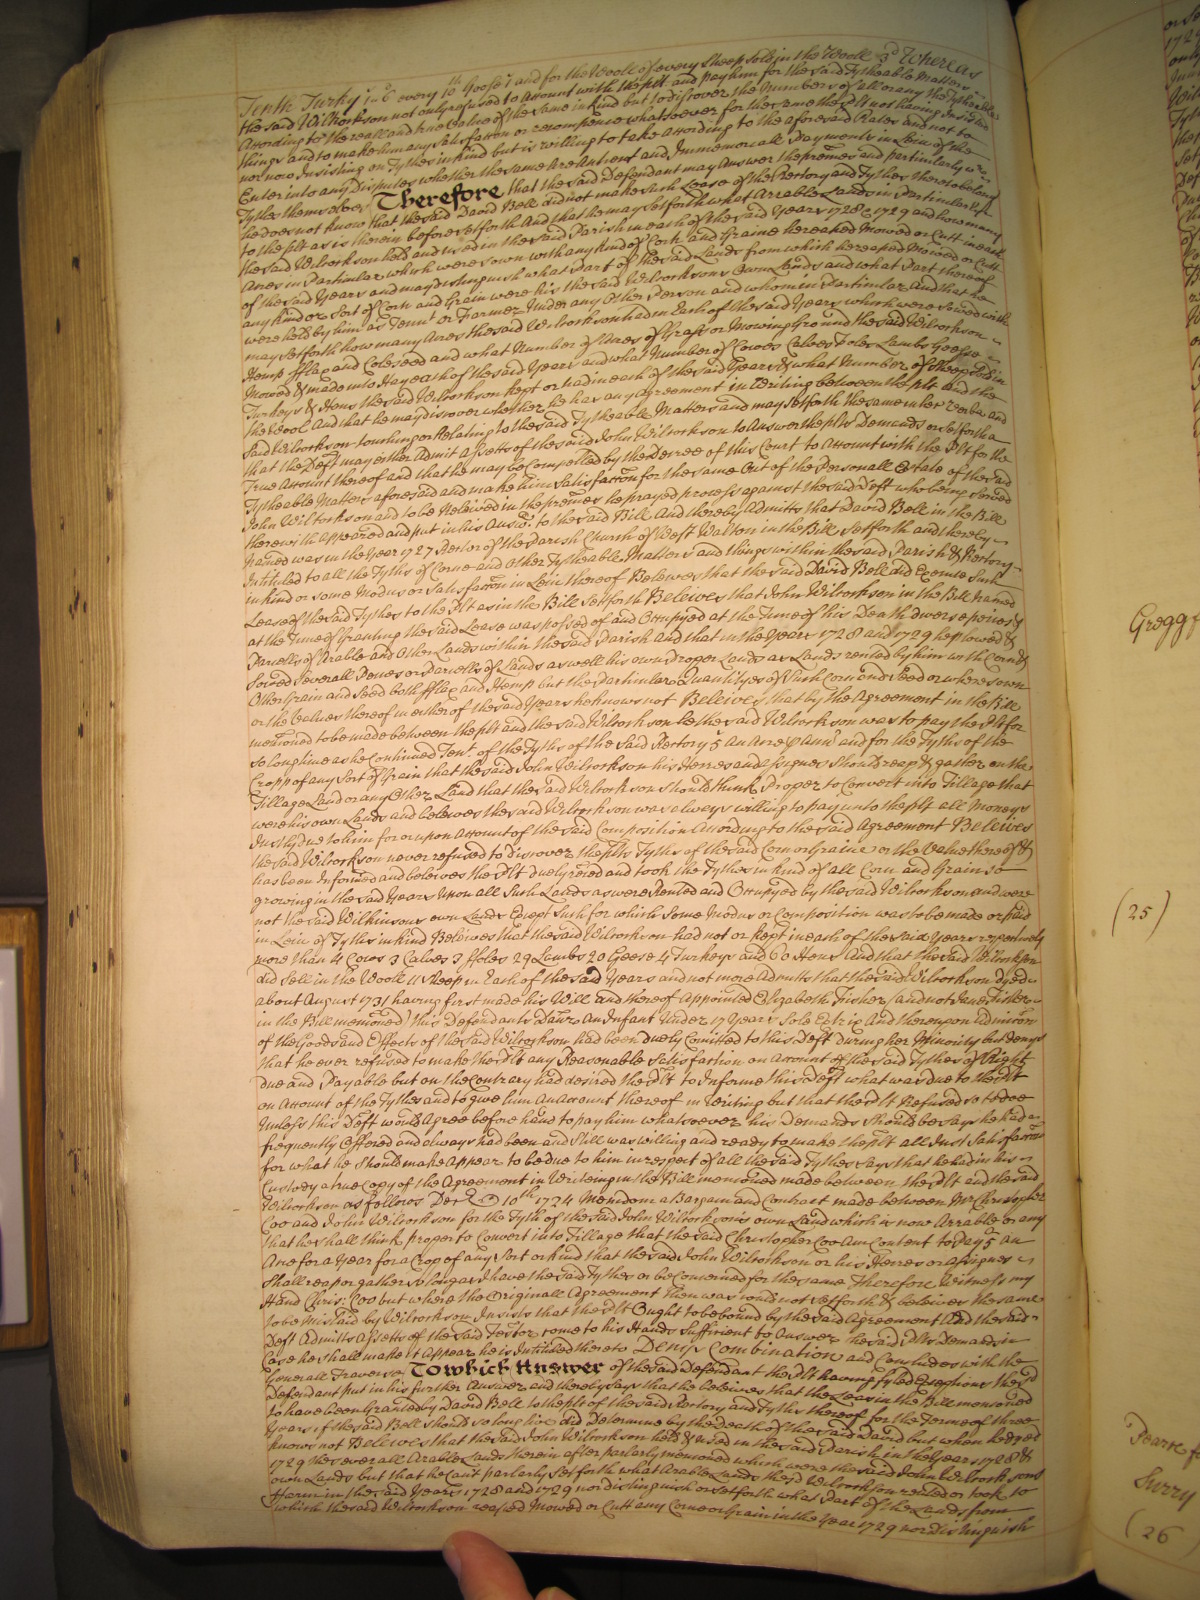 Tenth Turky 1s 6d every 10th Goose 7d and for the Wooll of every Sheep sold in the Wooll 3d Whereas
the said Wilcockson not only refused to Account with the plt and pay him for the said Tytheable Matters
According to the reall and true Value of the same in kind but to discover the Numbers of all or any the Tytheable
things and to make him any satisfaccon or recompence whatsoever for the same the plt not having Insisted
nor now Insisting on Tythes in kind but is willing to take According to the aforesaid Rates and not to
Enter into any Disputes whether the same Are Antient and Immemoriall Payments in Leiu of the
Tythes themselves Therefore that the said Defendant may Answer the premes and particularly
he does not know that the said David Bell did not make such Lease of the Rectory and Tythes thereto belong
to the plt as is therein before set forth And that he may set forth what Arrable Lands in Particular
the said Wilcockson held and used in the said Parish in each of the said Years 1728 & 1729 and how many
Acres in Particular which were sown with any kind of Corn and Graine he reaped Mowed or Cutt in each
of the said Years and may distinguish what part of the said Lands from which he reaped Mowed or Cutt
any kind or Sort of Corn and Grain were his the said Wilcocksons Own Lands and what Part thereof
were held by him as Tennt or Farmer Under any Other Person and whom in Particular And that he
may set forth how many Acres the said Wilcockson had in Each of the said Years which were sowed with
Hemp fflax and Coleseed and what Number of Acres of Grass or Mowing Ground the said Wilcockson
Mowed & made into Hay each of the said Years and what Number of Cowes Calves Foles Lambs Geese
Turkeys & Hens the said Wilcockson kept or had in each of the said Years & what Number of Sheep sold in
the Wool And that he may discover whether he has any Agreement in Writing between the plt and the
said Wilcockson touching or Relating to the said Tytheable Matters and may set forth the same in hec verba and
that the Deft may either Admit Assetts of the said John Wilcockson to Answer the plts Demands or set forth a
True Account thereof and that he may be Compelled by the Decree of this Court to Account with the Plt for the
Tytheable Matters aforesaid and make him Satisfaccon for the same Out of the Personall Estate of the said
John Wilcockson and to be Releived in the premes he prayed process against the said Deft who being served
therewith Appeared and put in his Answr. to the said Bill And thereby Admitts that David Bell in the Bill
Named was in the Year 1727 Rector of the Parish Church of West Walton in the Bill set forth and thereby
Intituled to all the Tyths of Corne and Other Tytheable Matters and things within the said Parish & Rectory
in kind or some Modus or Satisfaccon in Leiu thereof Beleives that the said David Bell did Execute such
Lease of the said Tythes to the Plt as in the Bill set forth Beleives that John Wilcockson in the Bill Named
at the Time of Granting the said Lease was possed of and Occupyed at the Time of his Death diverse peices &
Parcells of Arable and Other Lands within the said Parish and that in the Years 1728 and 1729 he plowed &
Sowed severall Peices or Parcells of Lands as well his own Proper Lands as Lands rented by him with Corn &
Other Grain and Seed both fflax and Hemp but the Particular Quantityes of Such Corn and Seed or where sown
or the Values thereof in either of the said Years he knows not Beleives that by the Agreement in the Bill
mencioned to be made between the plt and the said Wilcockson he the said Wilcockson was to pay the Plt for
so long time as he Continued Tent. of the Tyths of the said Rectory 5s An Acre p Annm and for the Tyths of the
Cropp of any Sort of Grain that the said John Wilcockson his Heires and Assignes Should reap & gather on the
Tillage Land or any Other Land that the said Wilcockson should think Proper to Convert into Tillage that
were his own Lands and beleives the said Wilcockson was always willing to pay unto the plt all Moneys
Justly due to him for or upon Account of the said Composition According to the said Agreement Beleives
the said Wilcockson never refused to discover the plts Tyths of the said Corn or Graine or the Value thereof &
has been Informed and beleives the Plt duely vewed and took the Tythes in kind of all Corn and Grain so
growing in the said Years Upon all Such Lands as were Rented and Occupyed by the said Wilcockson and were
not the said Wilkinsons own Lands Except Such for which some Modus or Composition was to be made or paid
in Leiu of Tyths in kind Beleives that the said Wilcockson had not or kept in each of the said Years respectively
more than 4 Cows 3 Calves 3 ffoles 29 Lambs 20 Geese 4 Turkeys and 60 Hens And that the said Wilcockson
did Sell in the Wooll 11 Sheep in Each of the said Years and not more Admitts that the said Wilcockson Dyed
about August 1731 having first made his Will and thereof Appointed Elizabeth Fisher (and not Jane Fisher
in the Bill mencioned) this Defendants Daur. An Infant Under 17 Years Sole Extrix And thereupon Admicon
of the Goods and Effects of the said Wilcockson had been Duely Comitted to this Deft During her Minority but Denys
that he ever refused to make the Plt any Reasonable Satisfaction on Account of the said Tythes of Right
Due and Payable but on the Contrary had desired the Plt to Informe this Deft what was Due to the Plt
on Account of the Tythes and to give him An Account thereof in Writing but that the Plt Refused so to doe
Unless this Deft would Agree before hand to pay him whatsoever his Demands Should be Says he had
frequently Offered and always had been and Still was willing and ready to make the plt all Just Satisfaccon
for what he Should make Appear to be due to him in respect of all the said Tythes Says that he had in his
Custody a true Copy of the Agreement in Writeing in the Bill mencioned made between the Plt and the said
Wilcockson as follows Decr. 10th 1724 Memdom a Bargain and Contract made between Mr Christopher
Coo and John Wilcockson for the Tyth of the said John Wilcockson's own Land which is now Arrable or any
that he shall think proper to Convert into Tillage that the said Christopher Coo Am Content to Pay 5s an
Acre for a Year for a Crop of any Sort or kind that the said John Wilcockson or his Heires or assignes
Shall reap or gather so long as I have the said Tythes or be Concerned for the same Therefore Witness my
Hand Chris: Coo but where the Originall Agreement Then was could not set forth & beleives the same
to be Mislaid by Wilcockson Insists that the Plt Ought to be bound by the said Agreement And the said
Deft Admitts Assetts of the said Testor come to his Hands Sufficient to Answer the said Plts Demands in
Case he shall make it Appear he is Intituled thereto Denys Combination and Concludes with the
Generall Traverse To which Answer of the said Defendant the Plt having fyled Exceptions the sd
Defendant put in his further Answer and thereby Says that he beleives that the Lease in the Bill mencioned
to have been Granted by David Bell to the plt of the said Rectory and Tyths thereof for the Terme of three
Years if the said Bell should so long live did Determine by the Death of the said David but when he dyed
knows not Beleives that the said John Wilcockson held & used in the said Parish in the Years 1728 &
1729 the severall Arable Lands therein after particularly mencioned which were the said John Wilcocksons
own Lands but that he cant particularly set forth what Arable Lands the sd Wilcockson rented or took to
Farm in the said Years 1728 and 1729 nor distinguish or set forth what Part of the Lands from
which the said Wilcockson reaped Mowed or Cutt any Corne or Grain in the Year 1729 nor Distinguish
Gregg f
(25)
Pearce f
Surry
(26